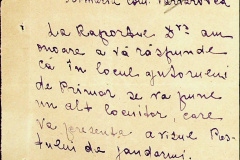 Primăria com.
La Raportul Dvs am
onoare a vă răspunde
că în locul ajutorului
de Primar se va pune
un alt locuitor, care
va prezenta avizul Pos-
tului de jandarmi.